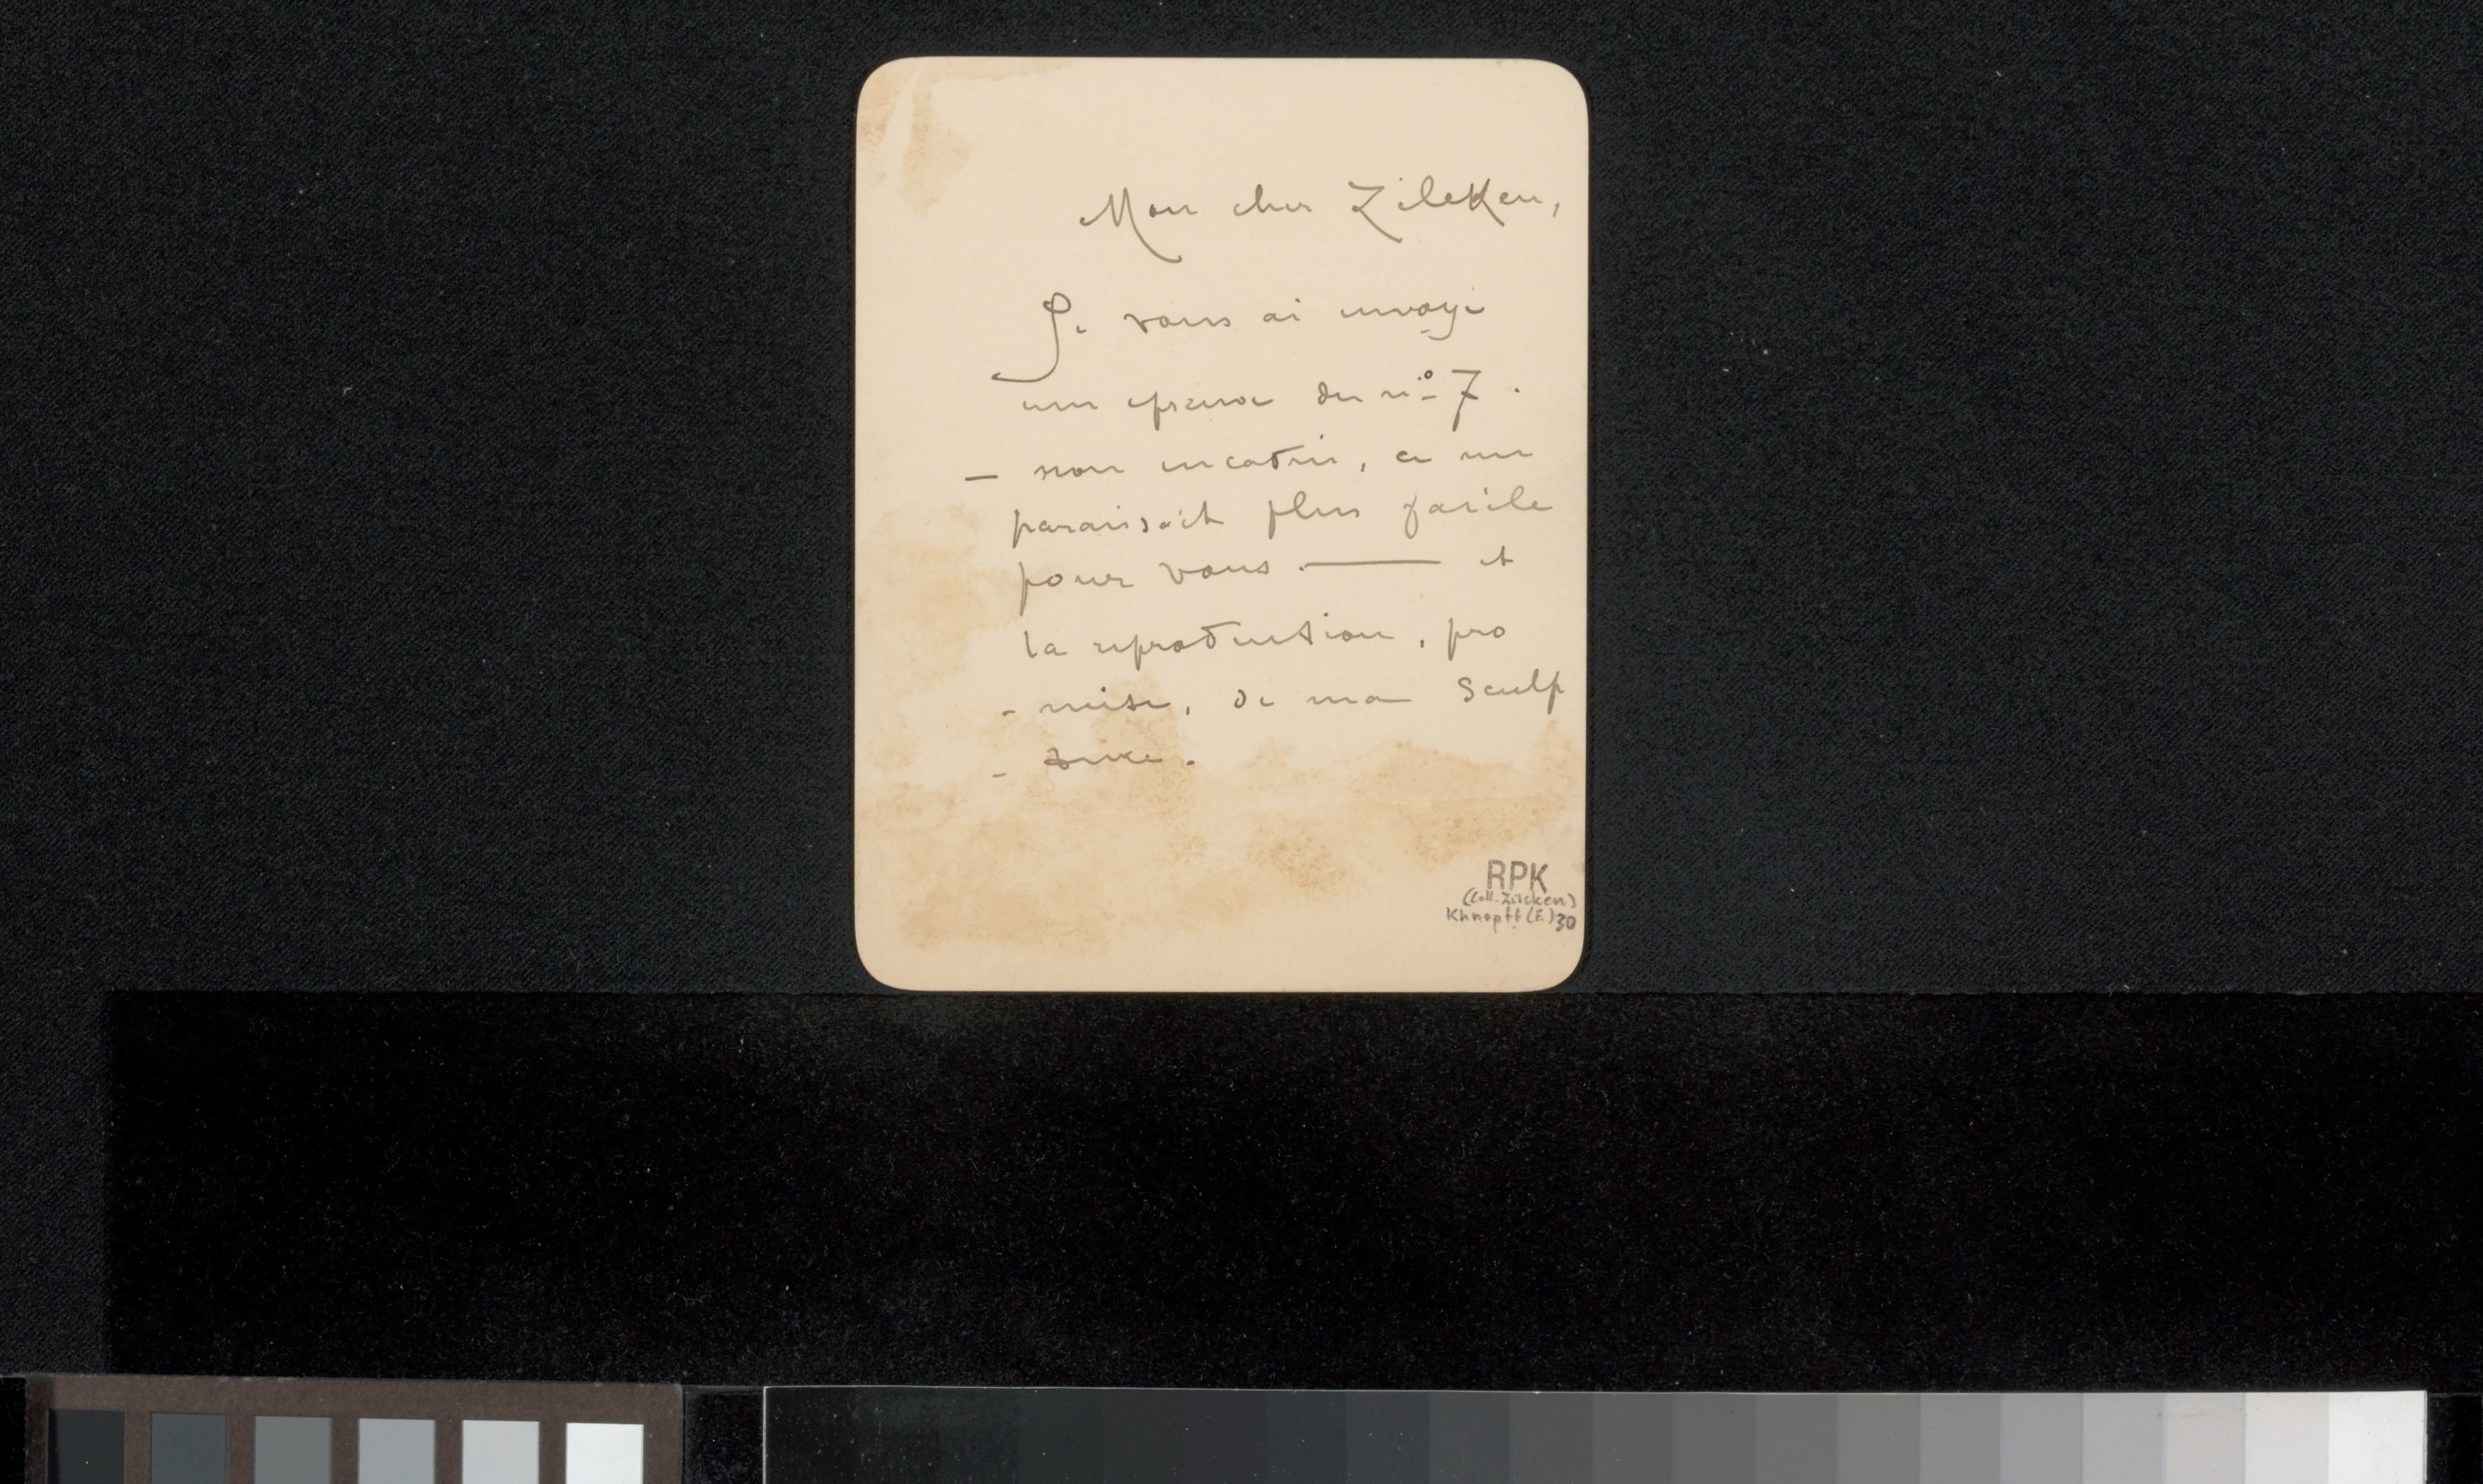 Mon cher Zilcken,
Je vous ai envoyé
une épreuve du nº 7.
— non encadrée, ce me
paraissait plus facile
pour vous. — et
la reproduction, pro
- mise, de ma sculp
- ture.
RPK
(Coll. Zilcken)
Khnopff (F.) 30